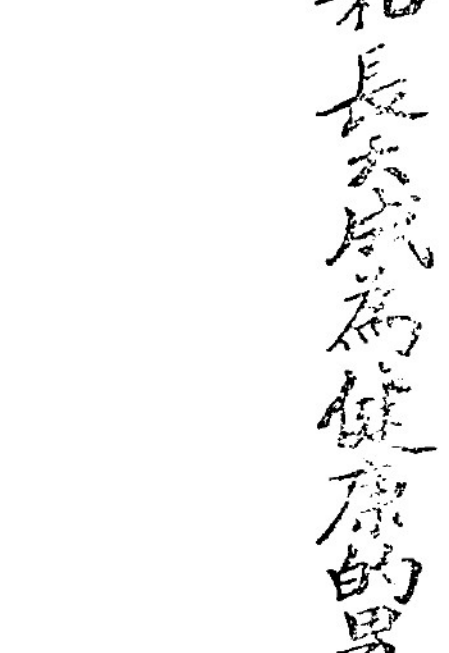 長大成為健康的男